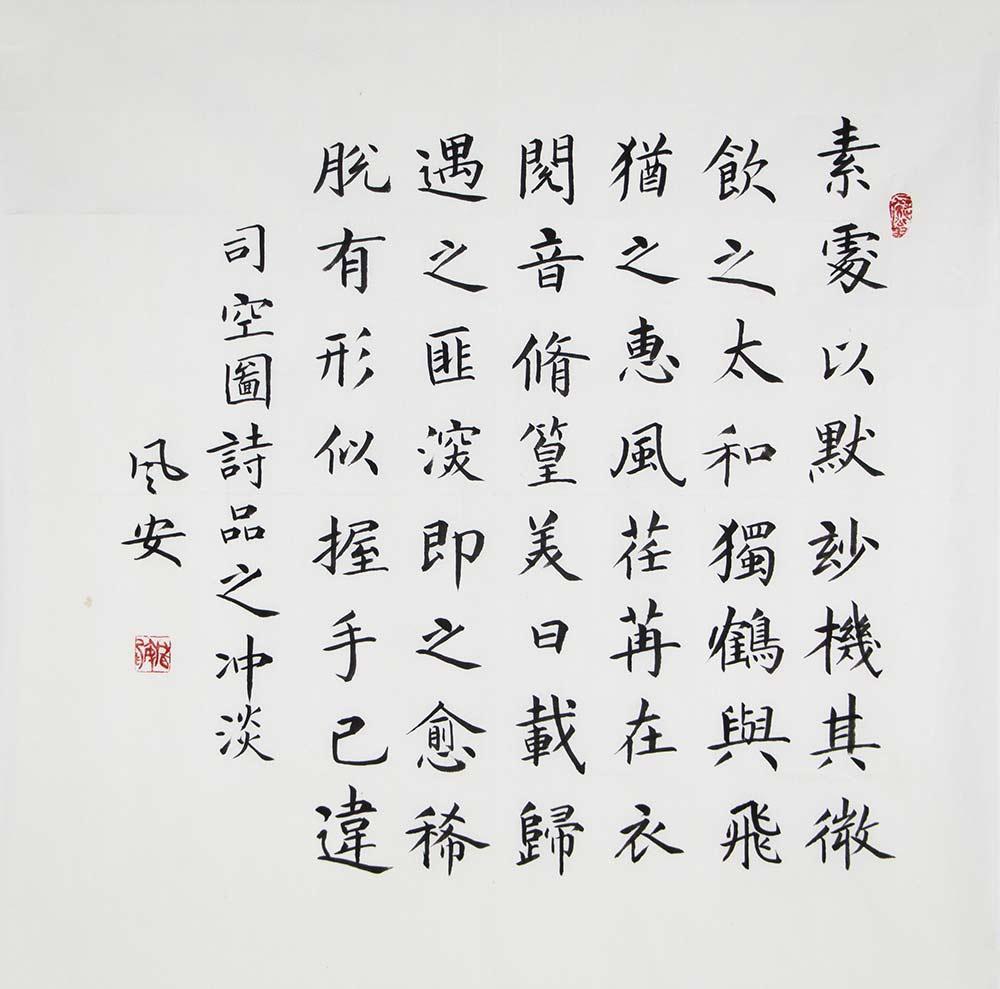 素處以默玅機其微
飲之太和獨鶴與飛
猶之惠風荏苒在衣
閱音脩篁美曰載歸
遇之匪深即之愈稀
脫有形似握手已違
司空圖詩品之冲淡
风安